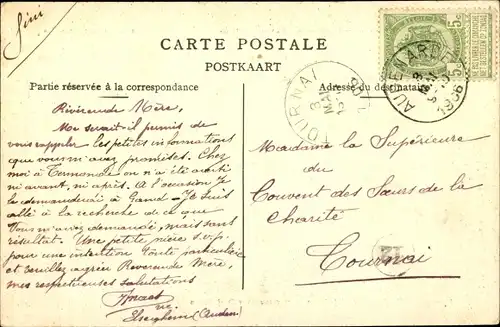 Sini
CARTE POSTALE
POSTKAART
Partie réservée à la correspondance
Adresse du destinataire
5c
AUDENARDE
1906
TOURNAI
MAI
Révérende Mère,
Me serait-il permis de
vous rappeler les petites informations
que vous m'avez promises. Chez
moi à Termonde on n'a été averti
ni avant, ni après. A l'occasion je
le demanderai à Gand - Je suis
allé à la recherche de ce que
vous m'avez demandé, mais sans
résultat. Une petite prière s.v.p.
pour une intention toute particulière
et veuillez agréer Révérende Mère,
mes respectueuses salutations
Elseghem (Auden.)
Madame la Supérieure
du
Couvent des Sœurs de la
Charité
Tournai